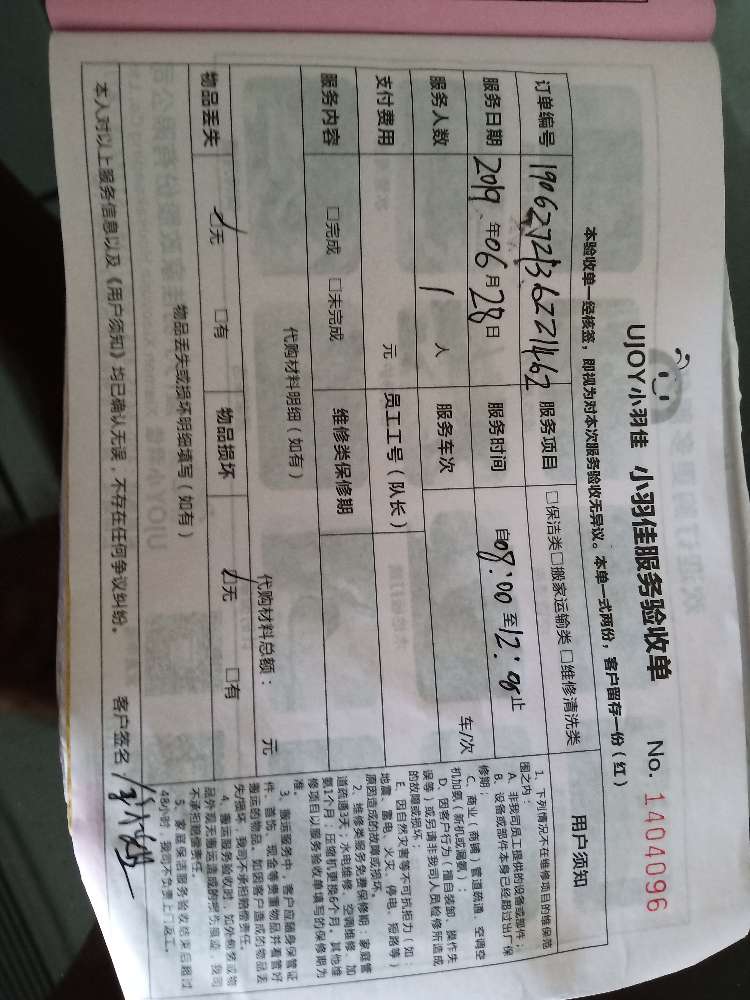 UJOY小羽佳 小羽佳服务验收单 No. 1404096
本验收单一经核签，即视为对本次服务验收无异议。本单一式两份，客户留存一份（红）
订单编号 1906272136221462 服务项目 □保洁类□搬家运输类□维修清洗类
服务日期 2019年06月28日 服务时间 自08:00至12:00止
服务人数 1 人 服务车次 车/次
支付费用 元 员工工号（队长）
服务内容 □完成 □未完成 维修类保修期
代购材料明细（如有） 代购材料总额： 元
物品丢失 ☑无 □有 物品损坏 ☑无 □有
物品丢失或损坏明细填写（如有）
本人对以上服务信息以及《用户须知》均已确认无误，不存在任何争议纠纷。 客户签名
用户须知
1、下列情况不在维修项目的维保范
围之内：
A、非我司员工提供的设备或部件；
B、设备或部件本身已经超过出厂保
修期；
C、商业（商铺）管道疏通、空调空
机加氟（新机或漏氟）；
D、因客户行为（擅自装卸、操作失
误等）或另请非我司人员检修所造成
的故障或损坏；
E、因自然灾害等不可抗拒力（如：
地震、雷电、火灾、停电、短路等）
原因造成的故障或损坏。
2、维修类服务免费保修期：家庭管
道疏通3天，水电维修、空调维修、加
氟1个月；压缩机更换6个月，其他维
修项目以服务验收单填写的保修期为
准。
3、搬运服务中，客户应随身保管证
件、首饰、现金等贵重物品并看管好
搬运的物品，如因客户造成的物品丢
失/损坏，我司不承担赔偿责任。
4、搬运服务验收时，如外包装或物
品外观无搬运造成的破损痕迹，我司
不承担赔偿责任。
5、家庭保洁服务验收结束后超过
48小时，我司不负责上门返工。